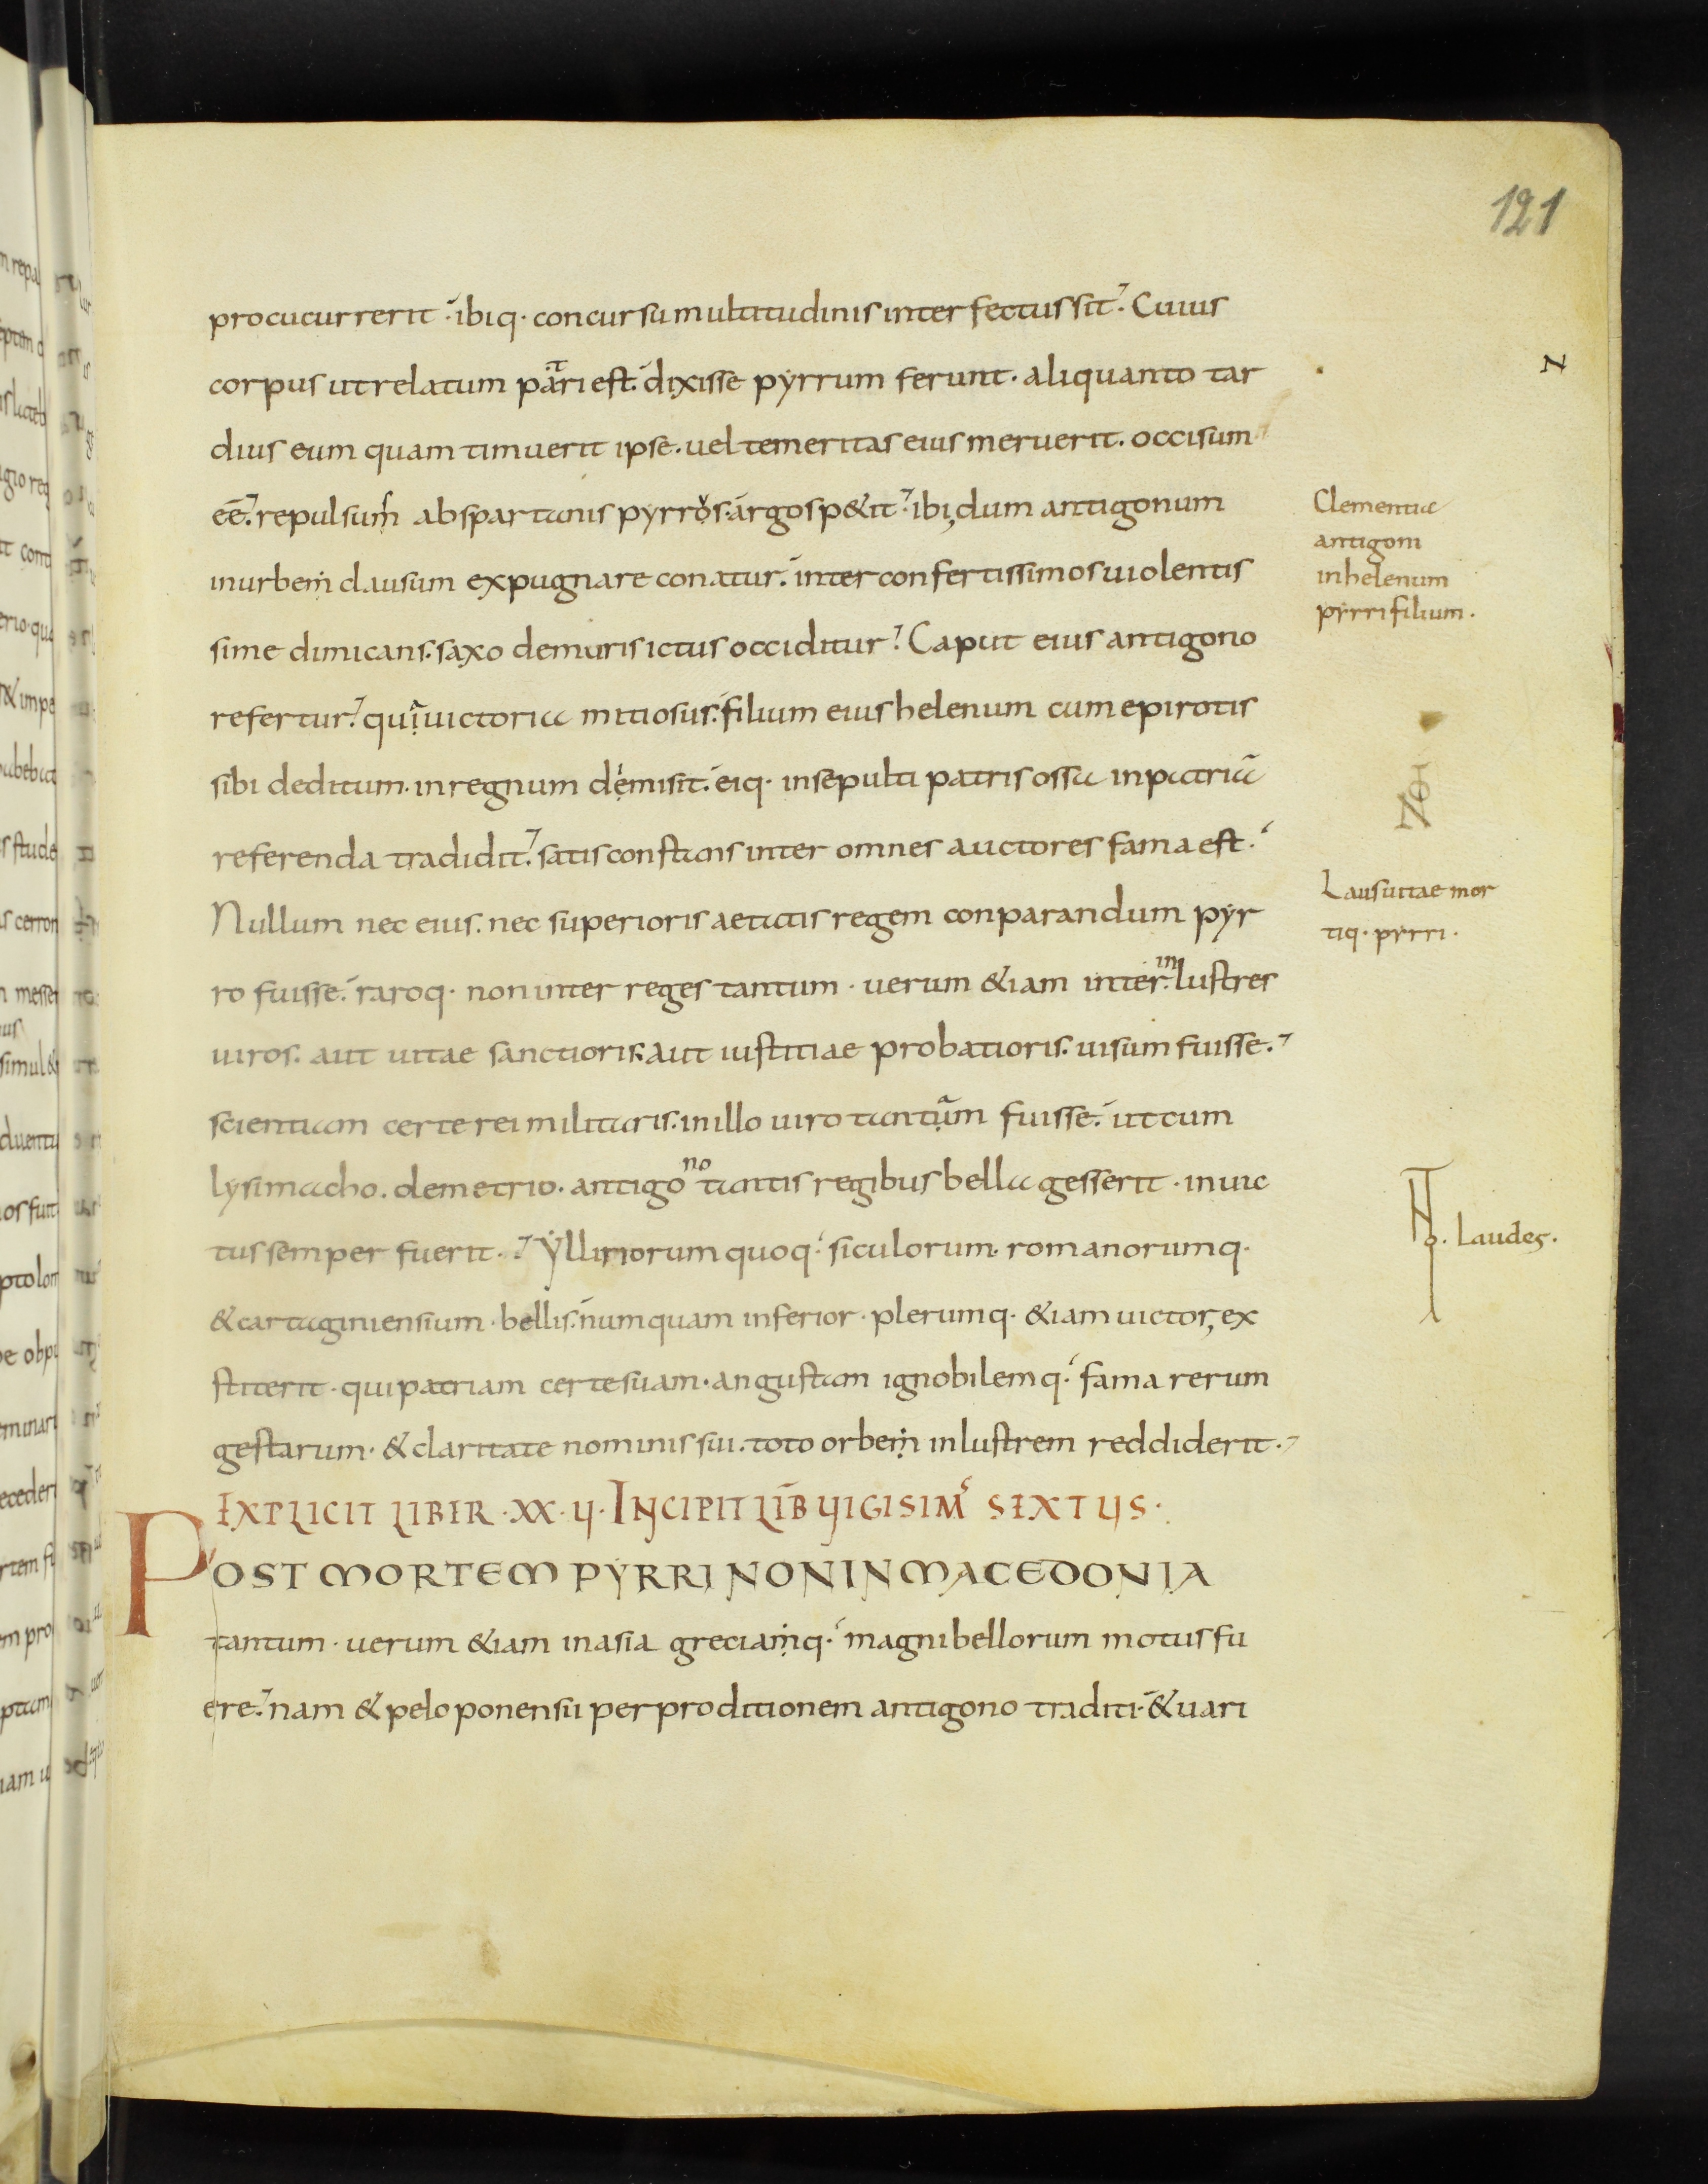 121
procucurrerit · ibiq· concursu multitudinis interfectus sit. Cuius
corpus ut relatum patri est. dixisse pyrrum ferunt. aliquanto tar
dius eum quam timuerit ipse. uel temeritas eius meruerit. occisum
eē. repulsum absp artanis pyrros. argos p&it. ibi dum antigonum
in urbem clausum expugnare conatur. inter confertissimos uiolentis
sime dimicans. saxo de muris ictus occiditur. Caput eius antigono
refertur. qui uictoria mitius usus. filium eius helenum cum epirotis
sibi deditum. in regnum demisit. eiq· insepulti patris ossa in patriā
referenda tradidit. satis constans inter omnes auctores fama est.
Nullum nec eius. nec superioris aetatis regem conparandum pyr
ro fuisse. raroq· non inter reges tantum · uerum &iam inter inlustres
uiros. aut uitae sanctioris. aut iustitiae probatioris. uisum fuisse.
scientiam certe rei militaris. in illo uiro tantam fuisse. ut cum
lysimacho. demetrio. antigono tantis regibus bella gesserit · inuic
tus semper fuerit. Ylliriorum quoq· siculorum. romanorumq·
&cartaginiensium · bellis. numquam inferior · plerumq· &iam uictor, ex
stiterit · qui patriam certe suam · angustam ignobilemq· fama rerum
gestarum · & claritate nominis sui. toto orbem inlustrem reddiderit.
EXPLICIT LIBER · XX·V· INCIPIT LIB̄ VIGISIM' SEXTVS ·
POST MORTEM PYRRI NON IN MACEDONIA
tantum · uerum &iam in asia greciamq· magni bellorum motus fu
ere. nam & peloponensii per proditionem antigono traditi · & uari
N
Clementia
antigoni
in helenum
pyrri filium.
Laus uitae mor
tiq· pyrri.
Laudes.